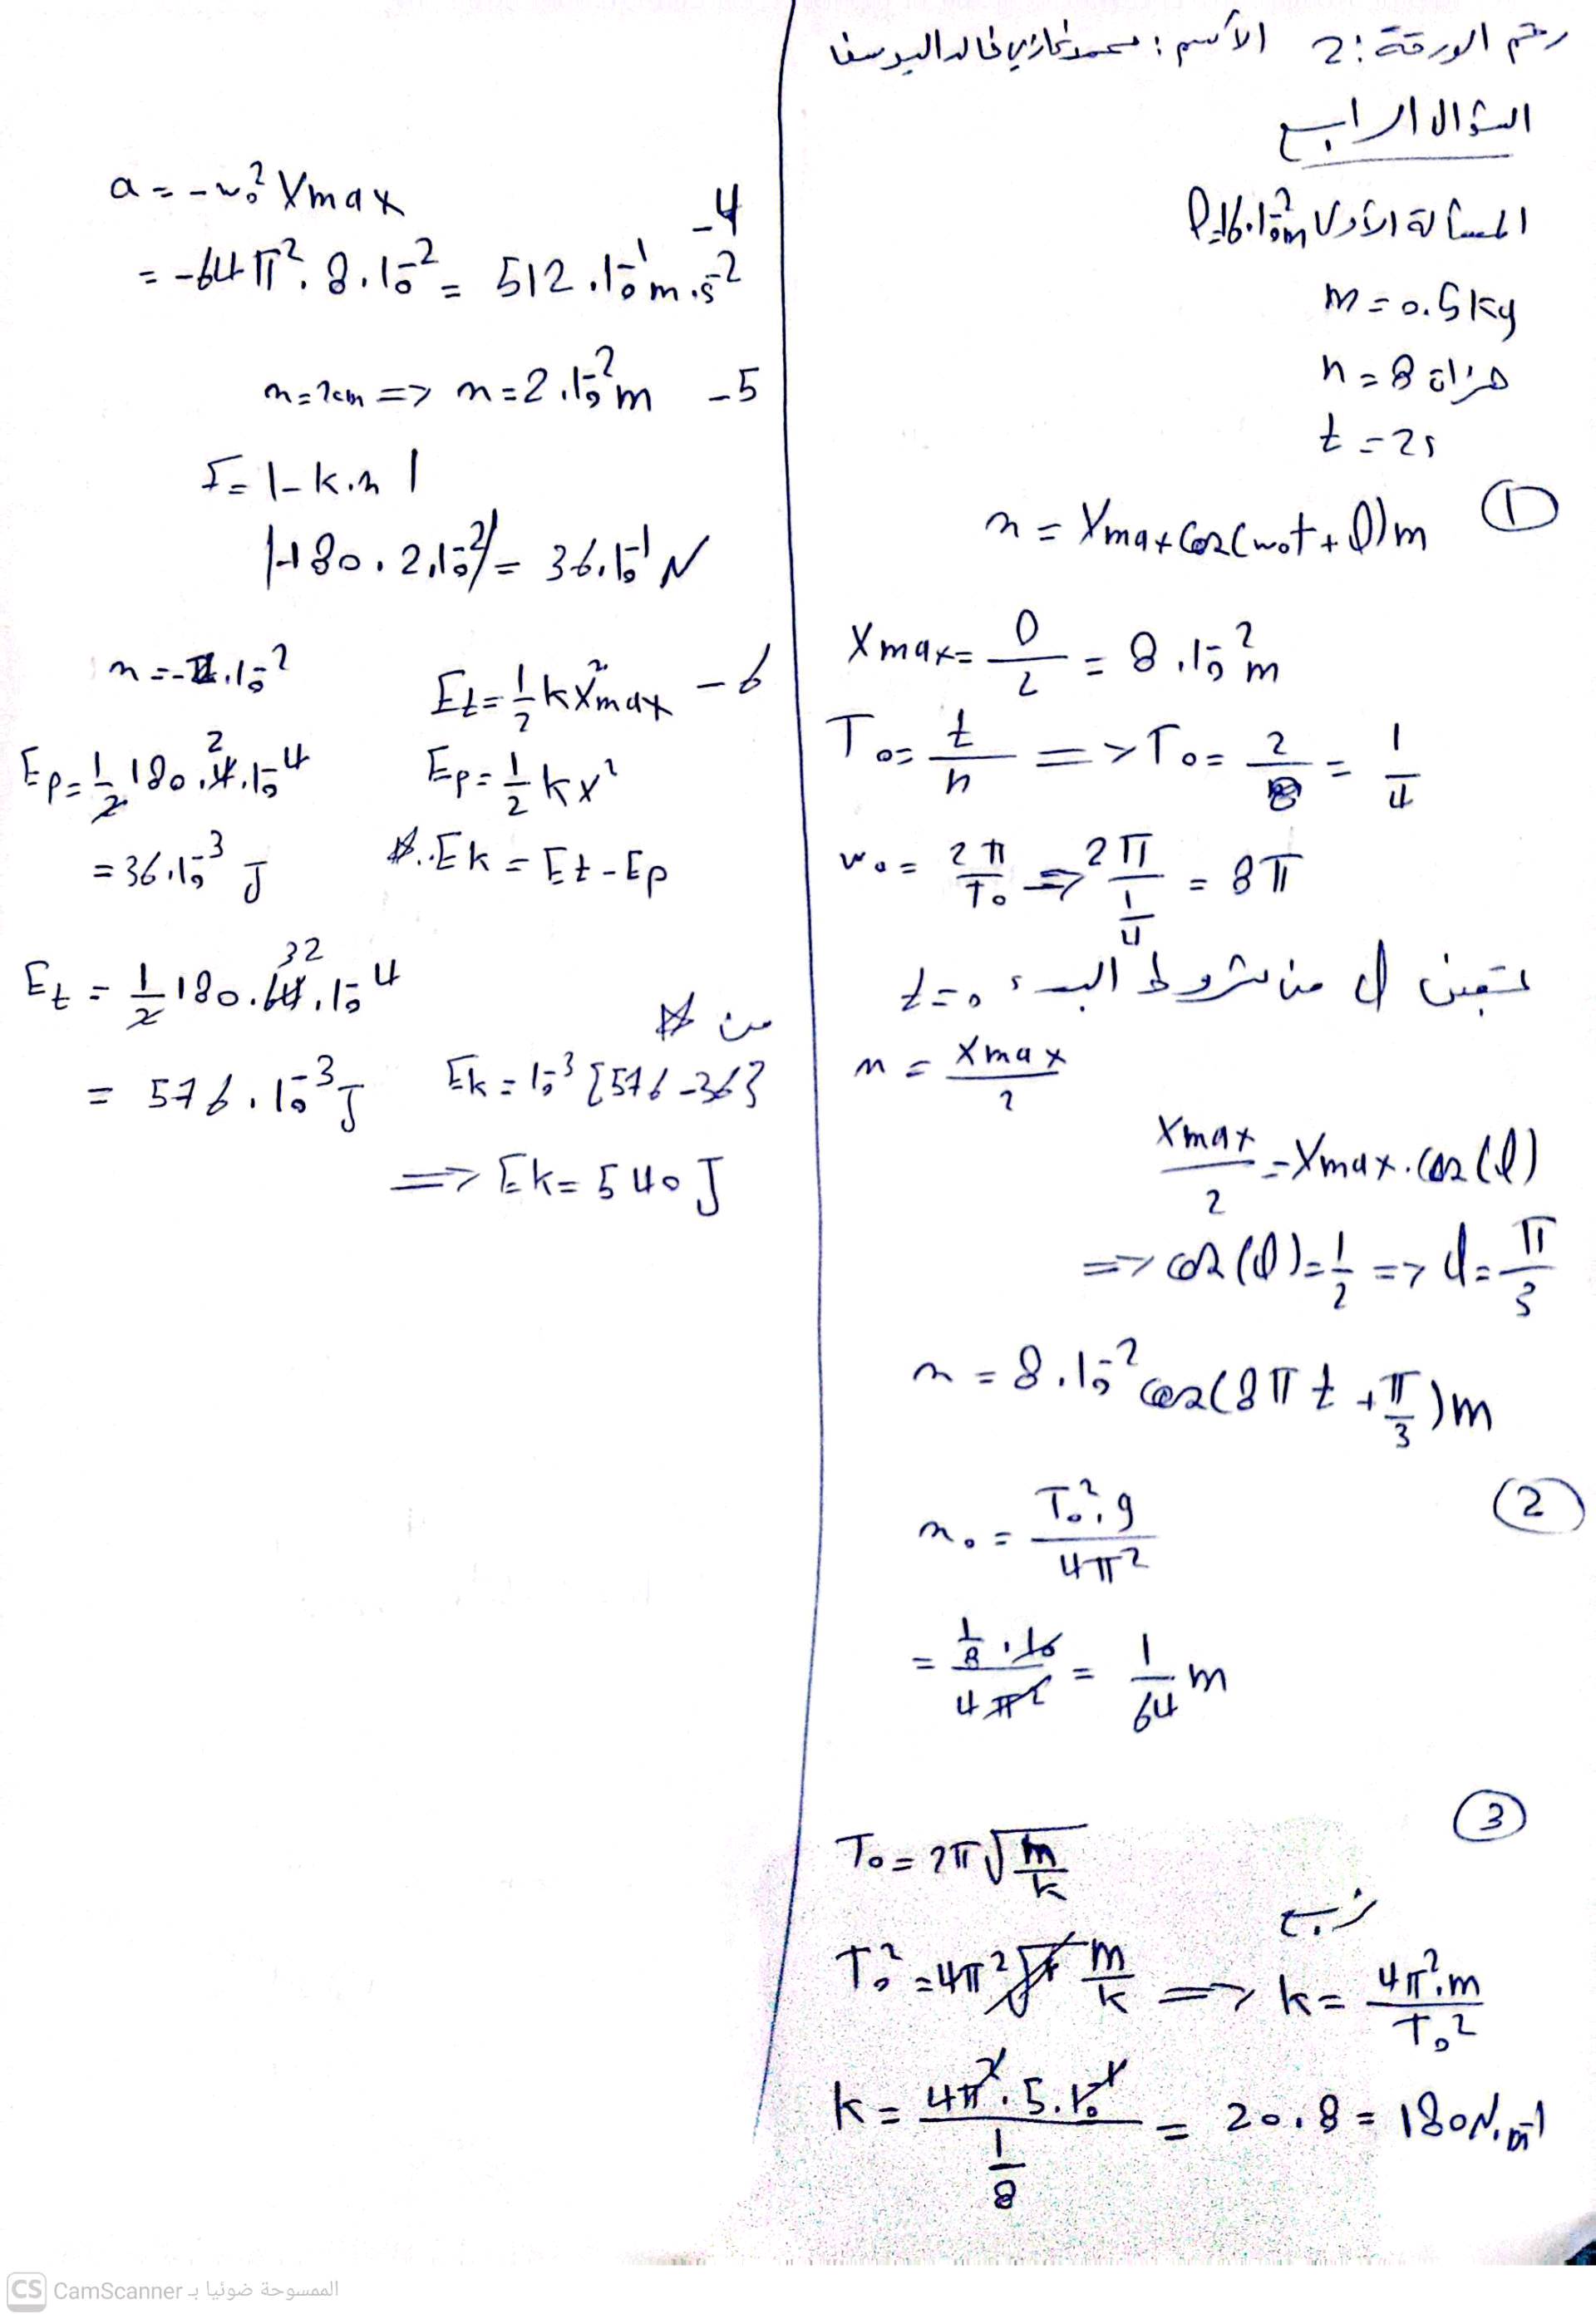 رقم الورقة: 2 الأسم: محمد غازي خالد اليوسف
السؤال الرابع
المسألة الأولى l=16.10^-2 m
m = 0.5 kg
n = 8 هزات
t = 2s
① x = Xmax cos(ω0t + φ) m
Xmax = l/2 = 8.10^-2 m
T0 = t/n => T0 = 2/8 = 1/4
ω0 = 2π/T0 => 2π/(1/4) = 8π
نعين φ من شروط البدء t=0
x = Xmax/2
Xmax/2 = Xmax.cos(φ)
=> cos(φ) = 1/2 => φ = π/3
x = 8.10^-2 cos(8πt + π/3) m
② x0 = T0^2.g/4π^2
= (1/8 . 10)/4π^2 = 1/64 m
③
T0 = 2π√(m/k)
نربع
T0^2 = 4π^2 m/k => k = 4π^2.m/T0^2
k = (4π^2.5.10^-1)/(1/8) = 20.8 = 180 N.m^-1
a = -ω0^2 Xmax -4
= -64π^2.8.10^-2 = 512.10^-1 m.s^-2
x = 2cm => x = 2.10^-2 m -5
F = |-k.x|
|-180.2.10^-2| = 36.10^-1 N
Et = 1/2 k X^2max -6
Ep = 1/2 kx^2
.Ek = Et - Ep
x = -2.10^-2
Ep = 1/2 180.4.10^-4 2
= 36.10^-3 J
Et = 1/2 180.64.10^-4 32
= 576.10^-3 J
من
Ek = 10^-3 [576-36]
=> Ek = 540 J
CS CamScanner الممسوحة ضوئيا بـ